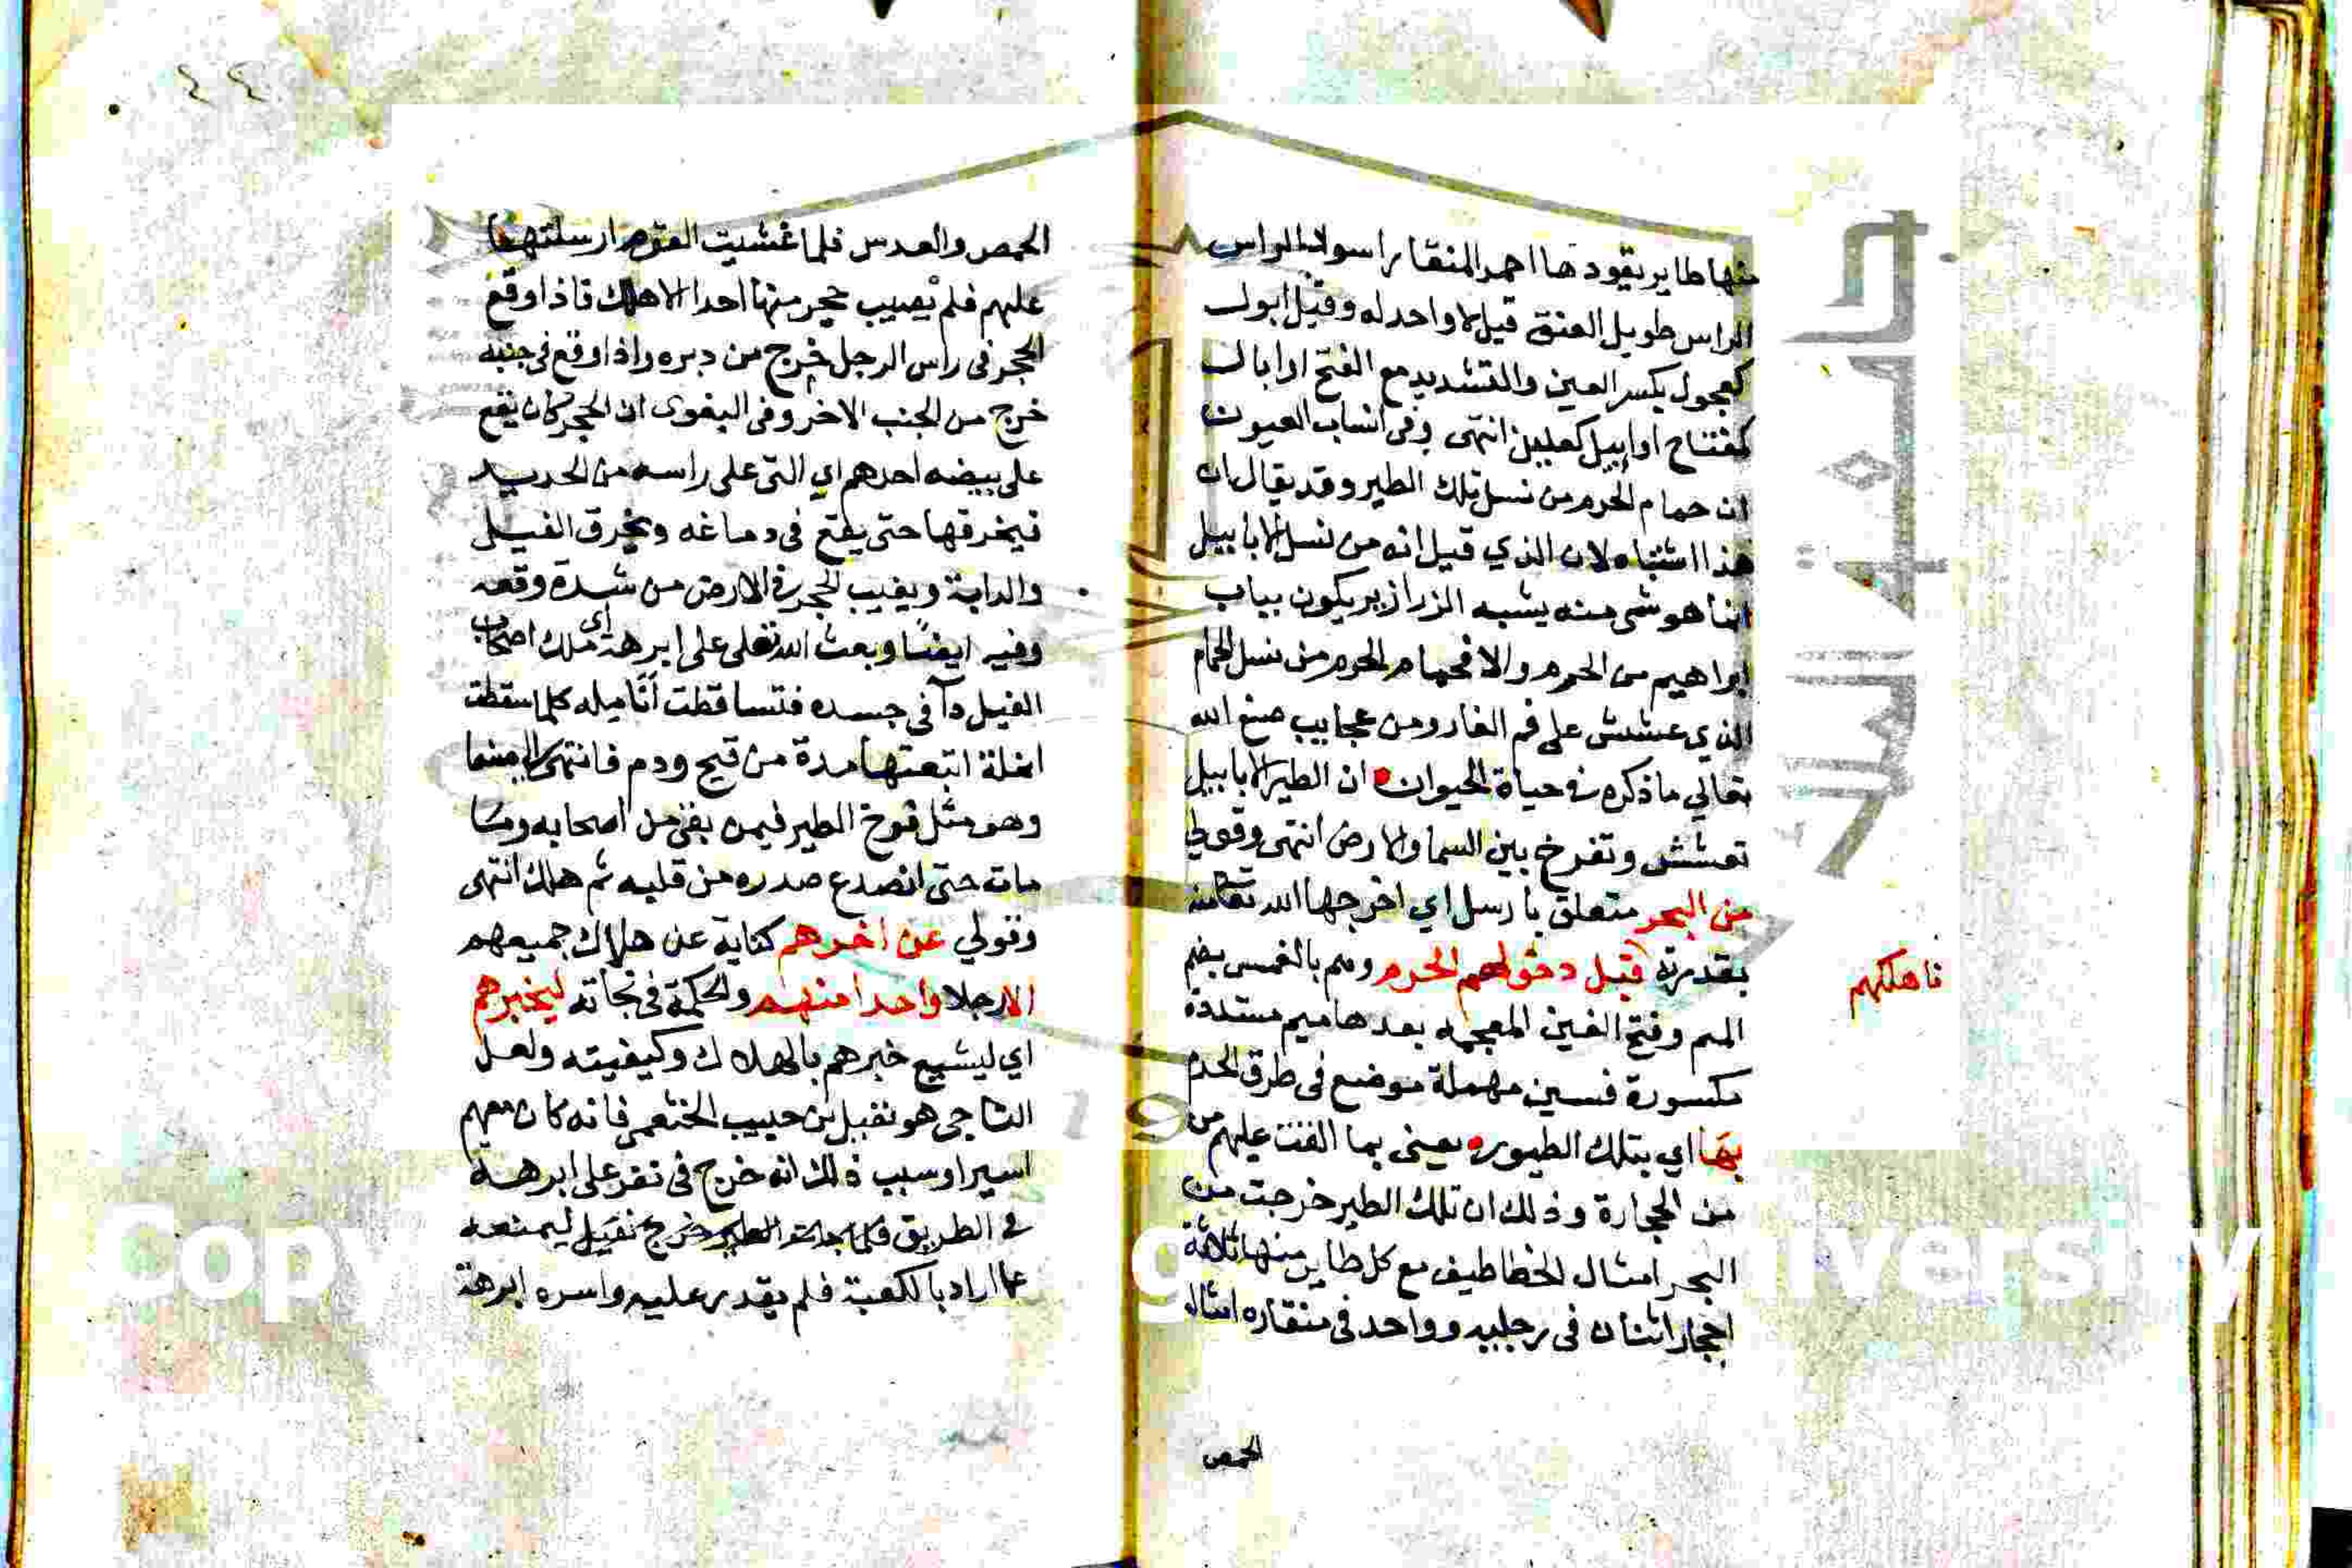 منها طاير يقودها احمر المنقار اسود الراس
الراس طويل العنق قيل لا واحد له وقيل ابول
كعجول بكسر العين والتشديد مع الفتح او ابال
كمفتاح او ابيل كعليين انتهى وفى انساب العيون
ان حمام الحرم من نسل تلك الطير وقد يقال ان
هذا اشتباه لان الذي قيل انه من نسل الابابيل
انما هو شى منه يشبه الزرازير يكون بباب
ابراهيم من الحرم والا فحمام الحرم من نسل الحمام
الذي عشش على فم الغار ومن عجايب صنع الله
تعالي ما ذكره في حياة الحيوان ان الطير الابابيل
تعشش وتفرخ بين السما والارض انتهى وقولي
من البحر متعلق بارسل اي اخرجها الله تعالى منه
بقدرته قبل دخولهم الحرم وهم بالمغمس بضم
الميم وفتح الغين المعجمه بعدها ميم مشددة
مكسورة فسين مهملة موضع فى طرق الحرم
فاهلكهم
بها اي بتلك الطيور يعنى بما القت عليهم من
من الحجارة وذلك ان تلك الطير خرجت من
البحر امثال الخطاطيف مع كل طاير منها ثلاثة
احجار اثنان فى رجليه وواحد فى منقاره امثال
الحمص
٤٤
الحمص والعدس فلما غشيت القوم ارسلتها
عليهم فلم يصيب حجر منها احدا الا هلك فاذا وقع
الحجر فى راس الرجل خرج من دبره واذا وقع فى جنبه
خرج من الجنب الاخر وفى البغوى ان الحجر كان يقع
على بيضه احدهم اي التى على راسه من الحديد
فيخرقها حتى يقع فى دماغه ويخرق الفيل
والدابة ويغيب الحجر في الارض من شدة وقعه
وفيه ايضا وبعث الله تعلى على ابرهة اى ملك اصحاب
الفيل دآ فى جسده فتساقطت أناميله كلما سقطت
انملة اتبعتها مدة من قيح ودم فانتهى الى صنعا
وهو مثل فرخ الطير فيمن بقى من اصحابه وما
مات حتى انصدع صدره من قلبه ثم هلك انتهى
وقولي عن اخرهم كناية عن هلاك جميعهم
الا رجلا واحدا منهم والحكمة فى نجاته ليخبرهم
اي ليشيع خبرهم بالهلاك وكيفيته ولعل
الناجى هو نفيل بن حبيب الخثعمى فانه كان معهم
اسيرا وسبب ذلك انه خرج فى نفر على ابرهة
في الطريق خرج نفيل ليمنعه
عما اراد بالكعبة فلم يقدر عليه واسره ابرهة